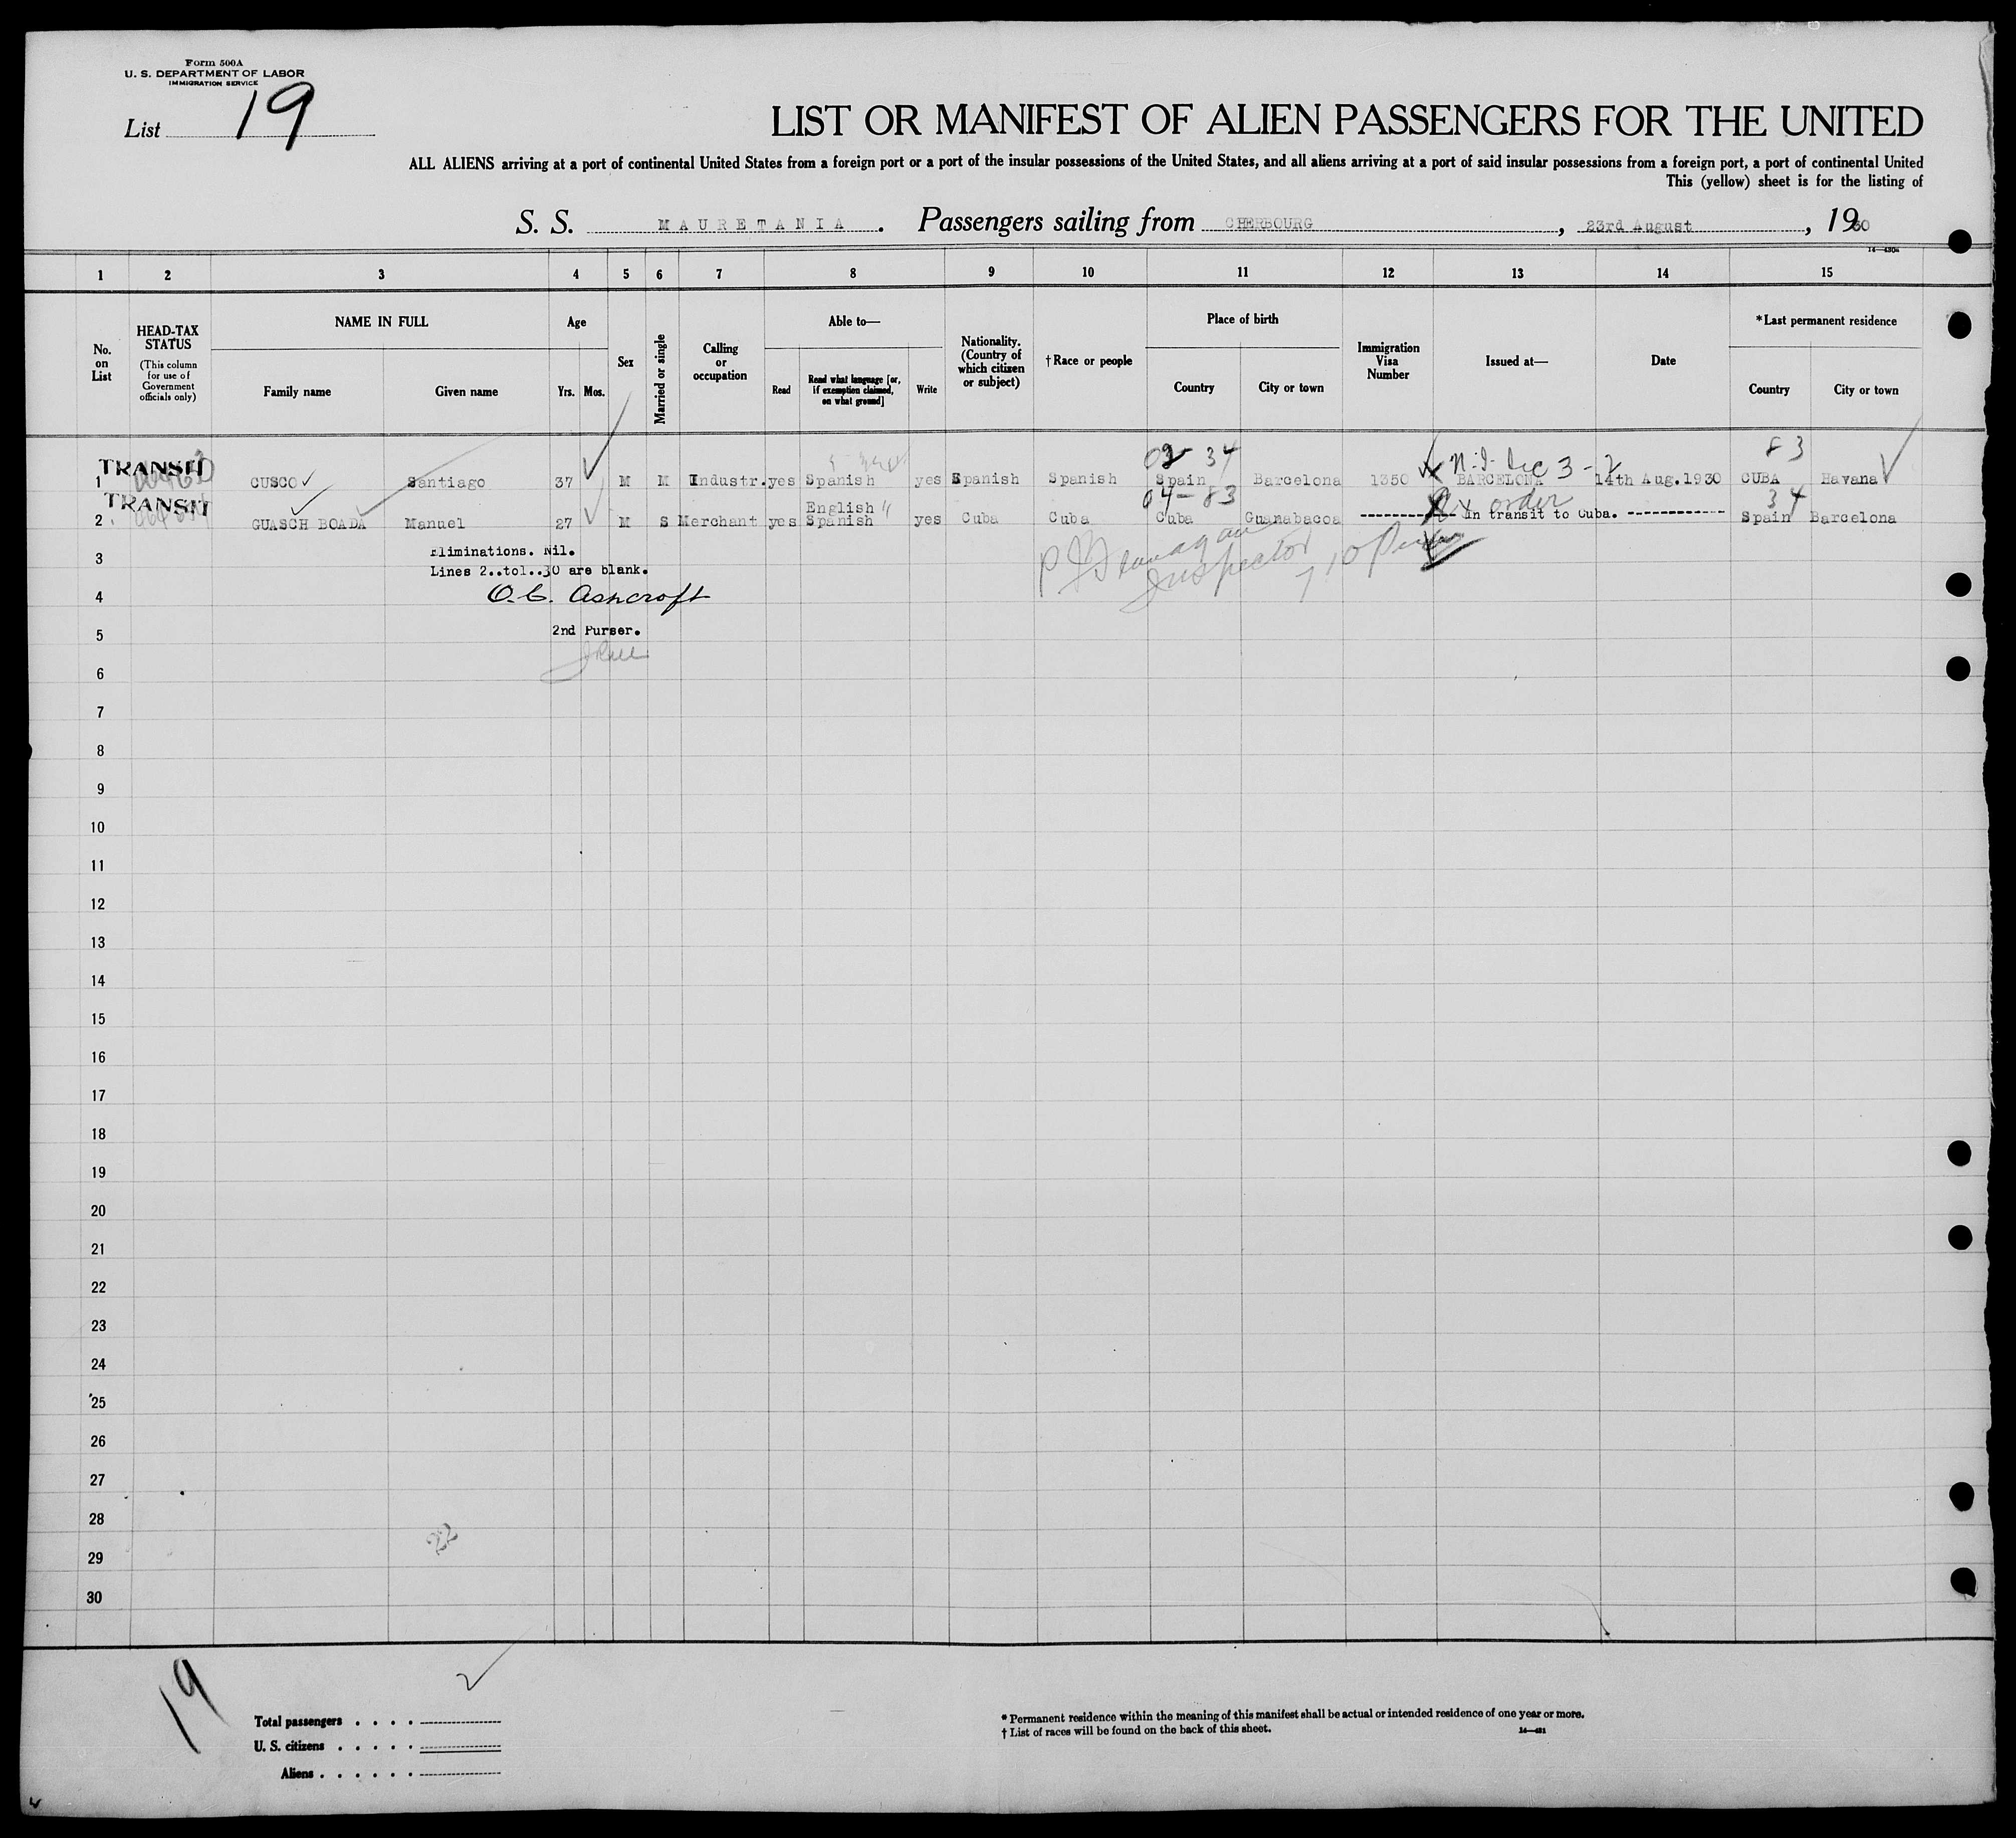 Form 500A
U. S. DEPARTMENT OF LABOR
IMMIGRATION SERVICE
List 19
LIST OR MANIFEST OF ALIEN PASSENGERS FOR THE UNITED
ALL ALIENS arriving at a port of continental United States from a foreign port or a port of the insular possessions of the United States, and all aliens arriving at a port of said insular possessions from a foreign port, a port of continental United
This (yellow) sheet is for the listing of
S. S. MAURETANIA. Passengers sailing from CHERBOURG, 23rd August, 1930
1 2 3 4 5 6 7 8 9 10 11 12 13 14 15
No. on List
HEAD-TAX STATUS
(This column for use of Government officials only)
NAME IN FULL
Family name
Given name
Age
Yrs. Mos.
Sex
Married or single
Calling or occupation
Able to—
Read
Read what language [or, if exemption claimed, on what ground]
Write
Nationality. (Country of which citizen or subject)
†Race or people
Place of birth
Country
City or town
Immigration Visa Number
Issued at—
Date
*Last permanent residence
Country
City or town
02 34 N.I. Dec 3-2 83
TRANSIT
1 CUSCO Santiago 37 M M Industr. yes Spanish yes Spanish Spanish Spain Barcelona 1350 BARCELONA 14th Aug. 1930 CUBA Havana
04-83 order 34
TRANSIT
2 GUASCH BOADA Manuel 27 M S Merchant yes English Spanish yes Cuba Cuba Cuba Guanabacoa In transit to Cuba. Spain Barcelona
3 Eliminations. Nil.
Lines 2..to1..30 are blank.
Inspector
4 O. C. Ashcroft
5 2nd Purser.
6
7
8
9
10
11
12
13
14
15
16
17
18
19
20
21
22
23
24
25
26
27
28
22
29
30
19
Total passengers . . . .
U. S. citizens . . . . .
Aliens . . . . . .
* Permanent residence within the meaning of this manifest shall be actual or intended residence of one year or more.
† List of races will be found on the back of this sheet.